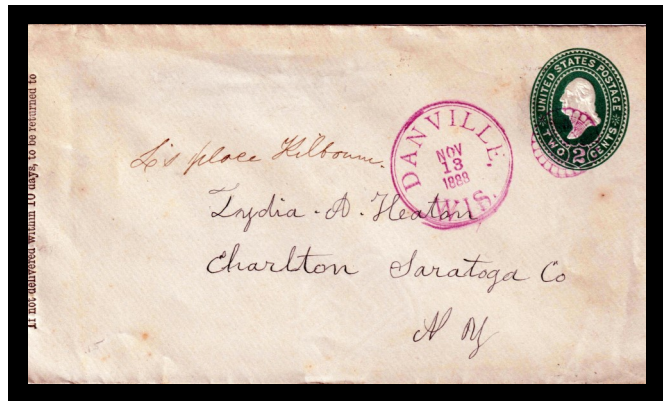 If not delivered within 10 days, to be returned to
UNITED STATES POSTAGE
TWO 2 CENTS
DANVILLE,
NOV
13
1888
WIS.
L's place Kilbourn.
Lydia - A - Heaton
Charlton Saratoga Co
N Y